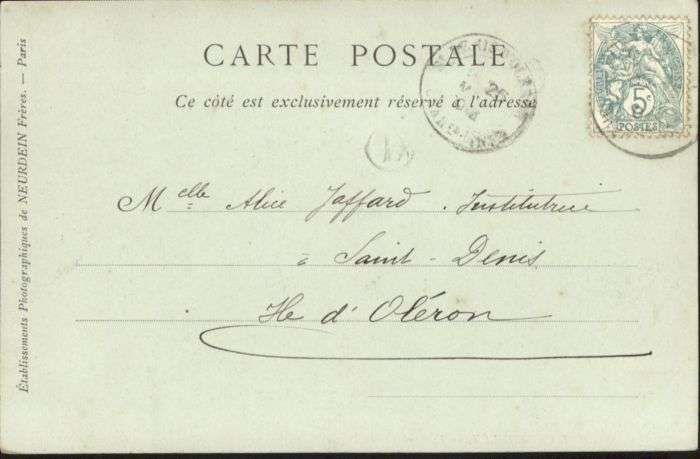 CARTE POSTALE
Ce côté est exclusivement réservé à l'adresse
5c
POSTES
Melle Alice Jaffard. Institutrice
à Saint-Denis
Ile d'Oléron
Établissements Photographiques de NEURDEIN Frères. — Paris